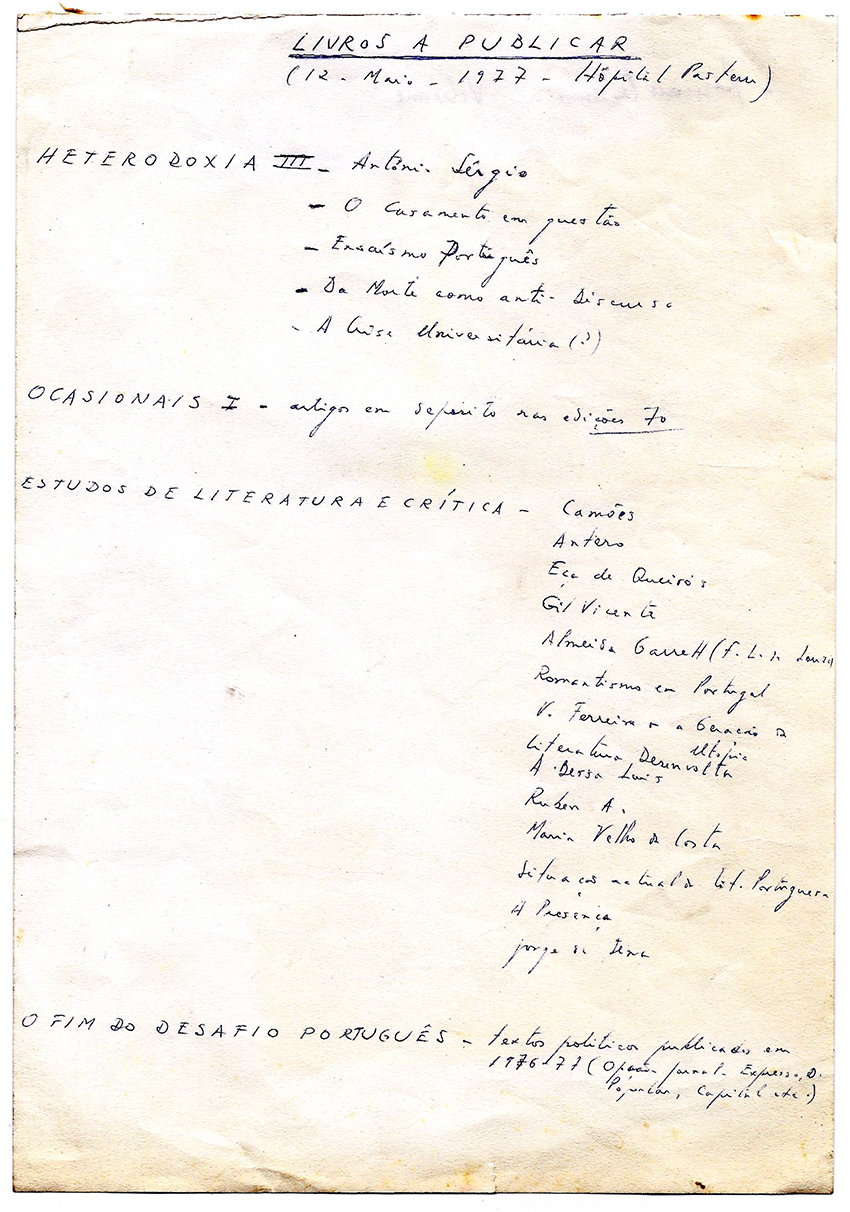 LIVROS A PUBLICAR
(12 - Maio - 1977 - Hôpital Pasteur)
HETERODOXIA III - António Sérgio
- O Casamento em questão
- Ensaísmo Português
- Da Morte como anti-Discurso
- A Crise Universitária (?)
OCASIONAIS I - artigos em depósito nas edições 70
ESTUDOS DE LITERATURA E CRÍTICA - Camões
Antero
Eça de Queirós
Gil Vicente
Almeida Garrett (F. L. de Sousa)
Romantismo em Portugal
V. Ferreira e a Geração da
Utopia
Literatura Desenvolta
A. Bessa Luis
Ruben A.
Maria Velho da Costa
Situação actual da Lit. Portuguesa
A Presença
Jorge de Sena
O FIM DO DESAFIO PORTUGUÊS - textos politicos publicados em
1976-77 (Opção, Jornal, Expresso, D.
Popular, Capital etc.)